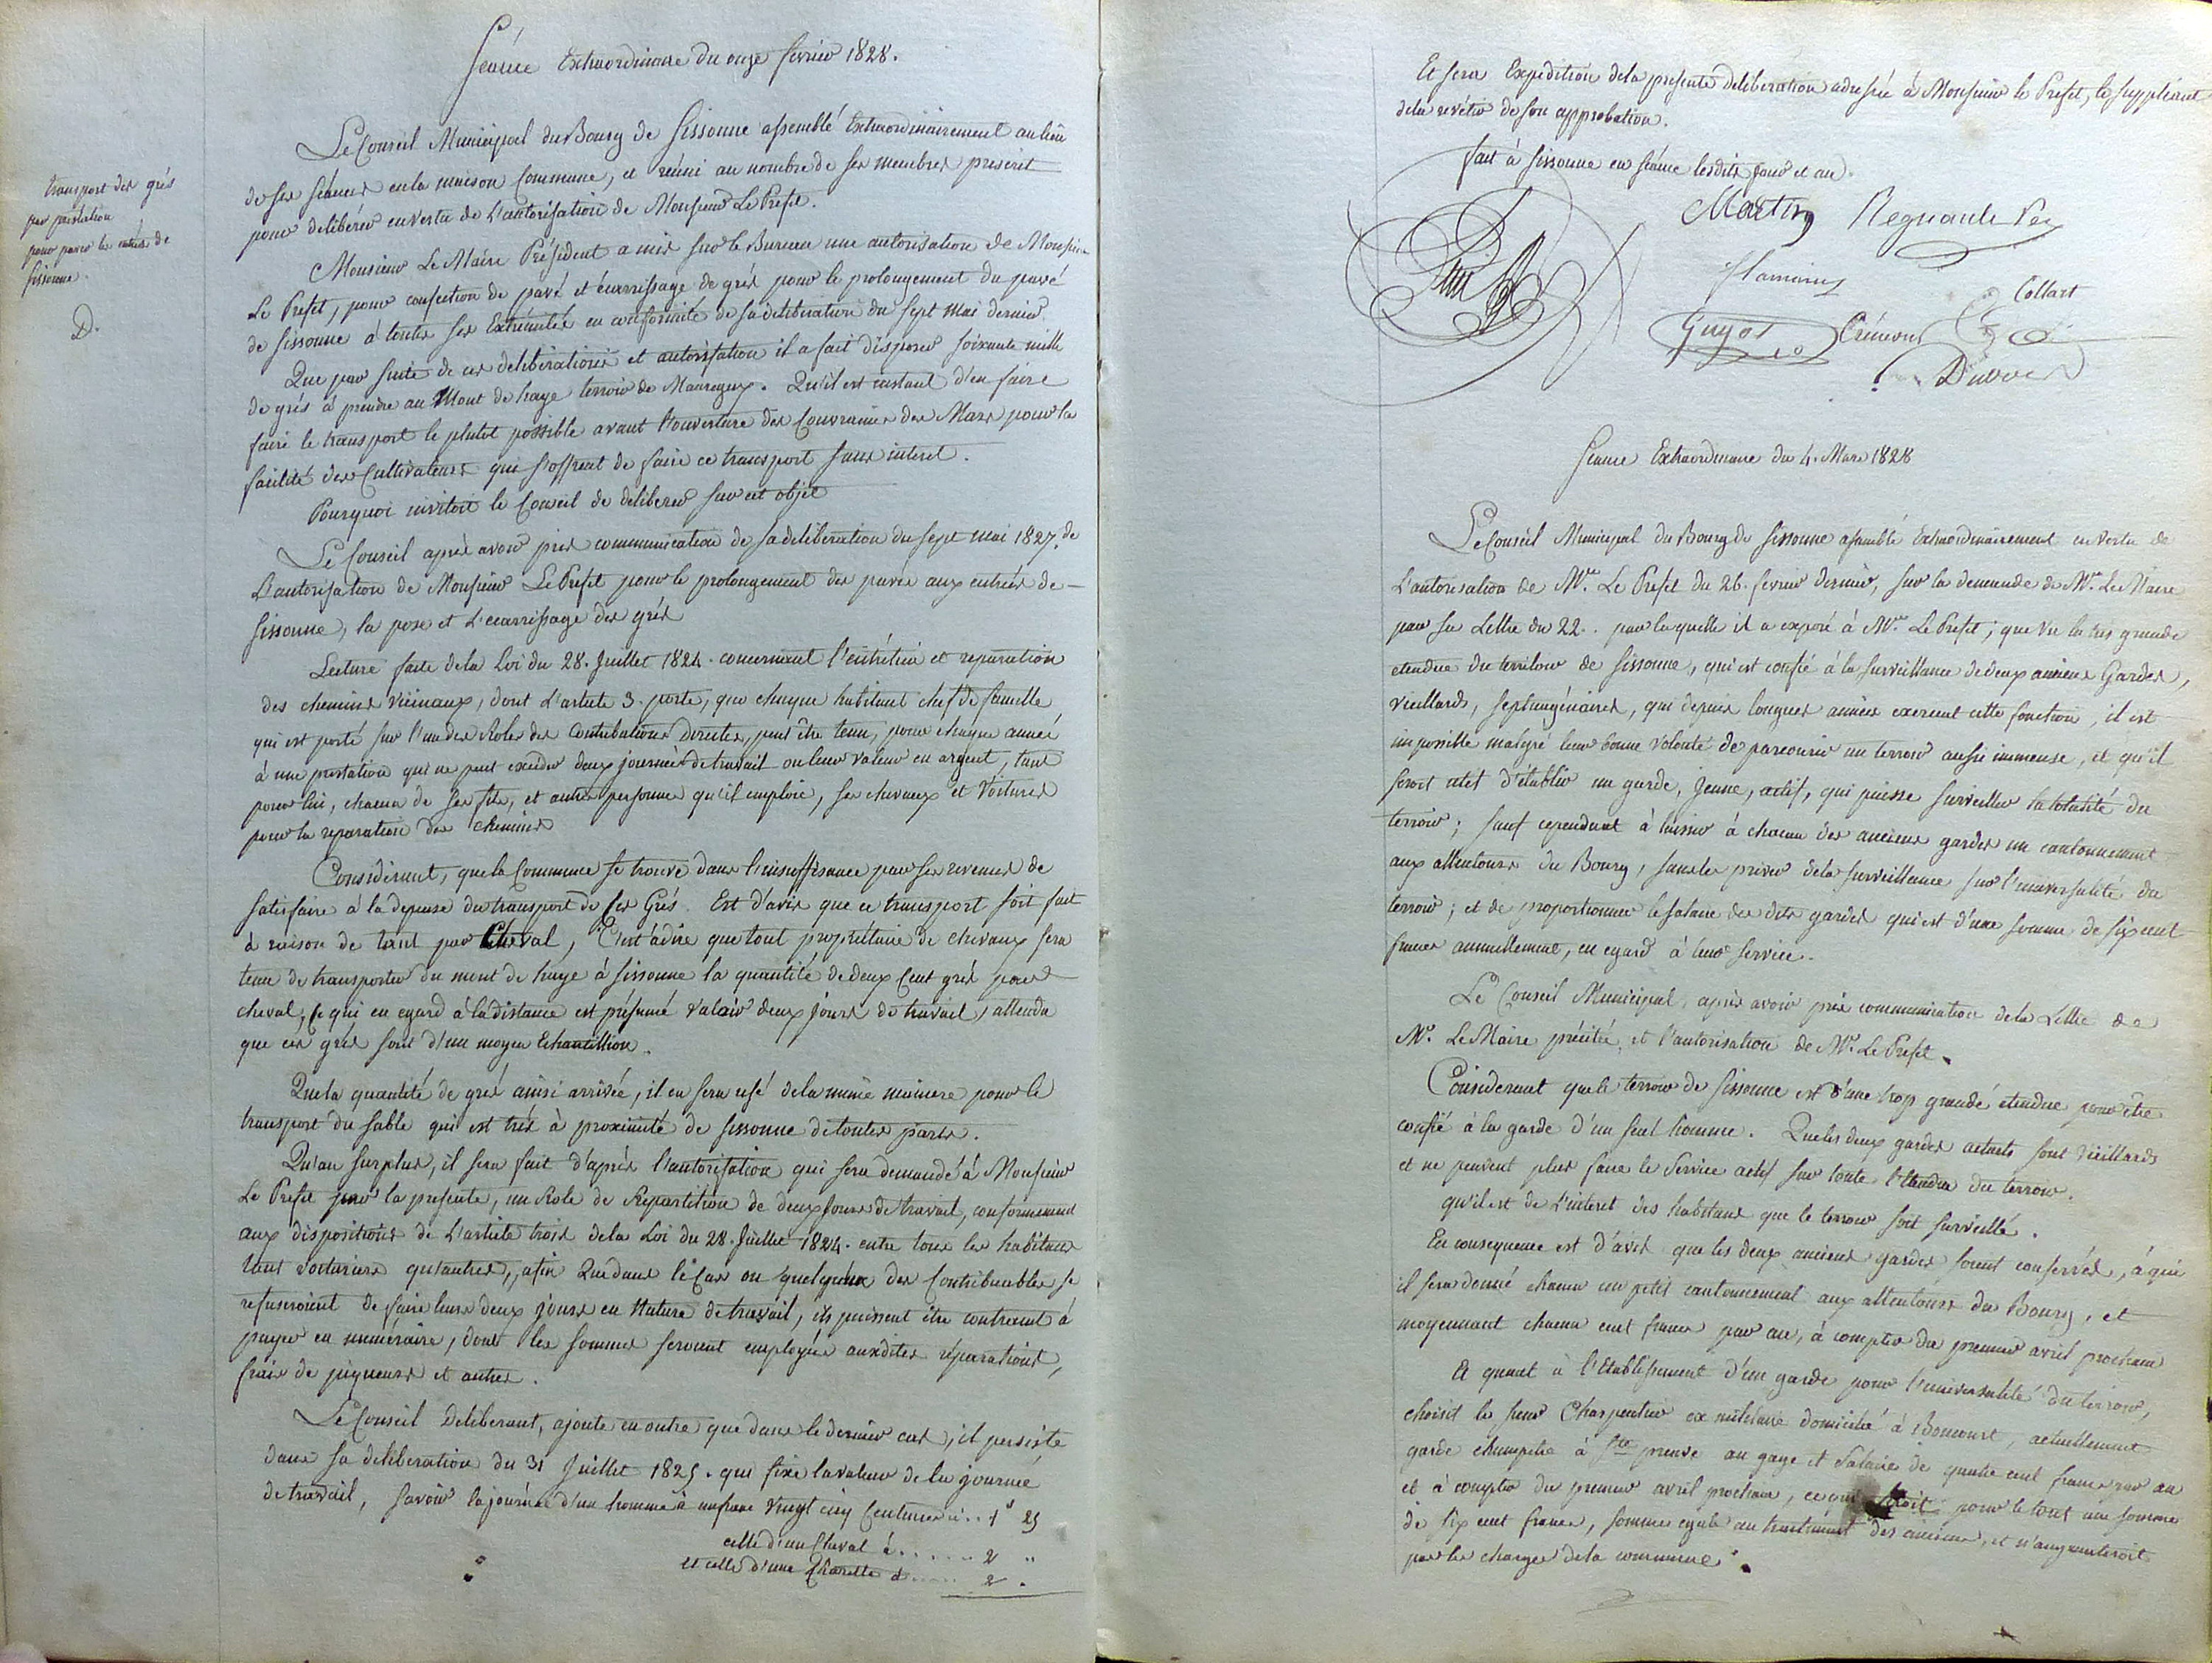 Séance Extraordinaire du onze fevrier 1828.
transport des grés
par prestation
pour paver les entrées de
Sissonne.
D.
Le Conseil Municipal du Bourg de Sissonne assemblé Extraordinairement au lieu
de ses séances en la maison Commune, et réuni au nombre de ses membres prescrit
pour deliberer en vertu de L'autorisation de Monsieur Le Prefet.
Monsieur Le Maire Président a mis sur le Bureau une autorisation de Monsieur
Le Prefet, pour confection de pavé et écarrissage de grés pour le prolongement du pavé
de Sissonne à toutes ses Extrémités en conformité de sa deliberation du sept mai dernier.
Que par suite de ces deliberations et autorisation il a fait disposer soixante mille
de grés à prendre au Mont de haye terroir de Mauregny. Qu'il est instant d'en faire
faire le transport le plutot possible avant l'ouverture des Couvraines des Mars pour la
facilité des Cultivateurs qui s'offrent de faire ce transport sans interet.
Pourquoi invitoit le Conseil de deliberer sur cet objet
Le Conseil après avoir pris communication de sa deliberation du sept mai 1827. de
L'autorisation de Monsieur Le Prefet pour le prolongement des pavés aux entrées de
Sissonne, la pose et L'ecarrissage des grés
Lecture faite de la Loi du 28. Juillet 1824. concernant l'entretien et reparation
des chemins vicinaux, dont L'article 3. porte, que chaque habitant chef de famille
qui est porté sur l'un des Roles des Contributions Directes, peut être tenu, pour chaque année
à une prestation qui ne peut exceder deux journées de travail ou leur valeur en argent, tant
pour lui, chacun de ses fils, et autres personnes qu'il emploie, ses chevaux et Voitures
pour la reparation des chemins
Considérant, que la Commune se trouve dans l'insuffisance par ses revenus de
satisfaire à la depense du transport de ses Grés. Est d'avis que ce transport soit fait
à raison de tant par Cheval, C'est adire que tout proprietaire de chevaux sera
tenu de transporter du mont de haye à Sissonne la quantité de deux Cent grés par
cheval, ce qui en egard à la distance est présumé valoir deux jours de travail, attendu
que ces grés sont d'un moyen Echantillion.
Que la quantité de grés ainsi arrivée, il en sera usé de la même maniere pour le
transport du sable qui est très à proximité de Sissonne de toutes parts.
Qu'au surplus, il sera fait d'après l'autorisation qui sera demandé à Monsieur
Le Prefet par la presente, un Role de Repartition de deux Jours de travail, conformement
aux dispositions de L'article trois de la Loi du 28. Juillet 1824. entre tous les habitans
tant voituriers qu'autres, afin que dans le Cas ou quelqu'un des Contribuables se
refuseroient de faire leurs deux jours en Nature de travail, ils puissent être contraint à
payer en numéraire, dont les sommes seroient employées auxdites réparations,
frais de piqueurs et autres.
Le Conseil deliberant, ajoute en outre que dans le dernier cas, il persiste
dans sa deliberation du 31 Juillet 1825. qui fixe la valeur de la journée
de travail, savoir la journée d'un homme à un franc vingt cinq Centimes ci.. 1f 25
celle d'un Cheval à...... 2 "
et celle d'une Charette à...... 2 .
Et sera Expedition de la presente deliberation adressée à Monsieur le Prefet, le suppliant
de la revêtir de son approbation.
fait à Sissonne en séance lesdits jour et an.
Martin Regnault
Flamain
Collart
Guyot Crément
Séance Extraordinaire du 4. Mars 1828
Le Conseil Municipal du Bourg de Sissonne assemblé Extraordinairement en vertu de
L'autorisation de Mr. Le Prefet du 26. fevrier dernier, sur la demande de Mr. Le Maire
par sa Lettre du 22.. par laquelle il a exposé à Mr. Le Prefet; que Vu la très grande
etendue du territoire de Sissonne, qui est confié à la surveillance de deux anciens Gardes,
vieillards, septuagénaires, qui depuis longues années exercent cette fonction, il est
impossible malgré leur bonne volonté de parcourir un terroir aussi immense, et qu'il
seroit d'établir un garde, jeune, actif, qui puisse surveiller la totalité du
terroir; sauf cependant à laisser à chacun des anciens gardes un cantonnement
aux allentours du Bourg, sans les priver de la surveillance sur l'universalité du
terroir; et de proportionner le salaire des dits gardes qui est d'une somme de six cent
francs annuellement, en egard à leur service.
Le Conseil Municipal, après avoir pris communication de la Lettre de
Mr. Le Maire précitée, et l'autorisation de Mr. Le Prefet.
Considerant que le terroir de Sissonne est d'une trop grande etendue pour être
confié à la garde d'un seul homme. Que les deux gardes actuels sont vieillards
et ne peuvent plus faire le Service actif sur toute l'Etendue du terroir.
qu'il est de L'interet des habitans que le terroir soit surveillé.
En consequence est d'avis que les deux anciens gardes soient conservés, à qui
il sera donné chacun un petit cantonnement aux allentours du Bourg, et
moyennant chacun cent francs par an, à compter du premier avril prochain
Et quant à l'Etablissement d'un garde pour l'universalité du terroir,
choisit le sieur Charpentier ex militaire domicilié à Boncourt, actuellement
garde champetre à Ste preuve au gage et salaire de quatre cent francs par an
et à compter du premier avril prochain, ce qui feroit pour le tout une somme
de six cent francs, somme egale au traitement des anciens, et n'augmenteroit
pas les charges de la commune.